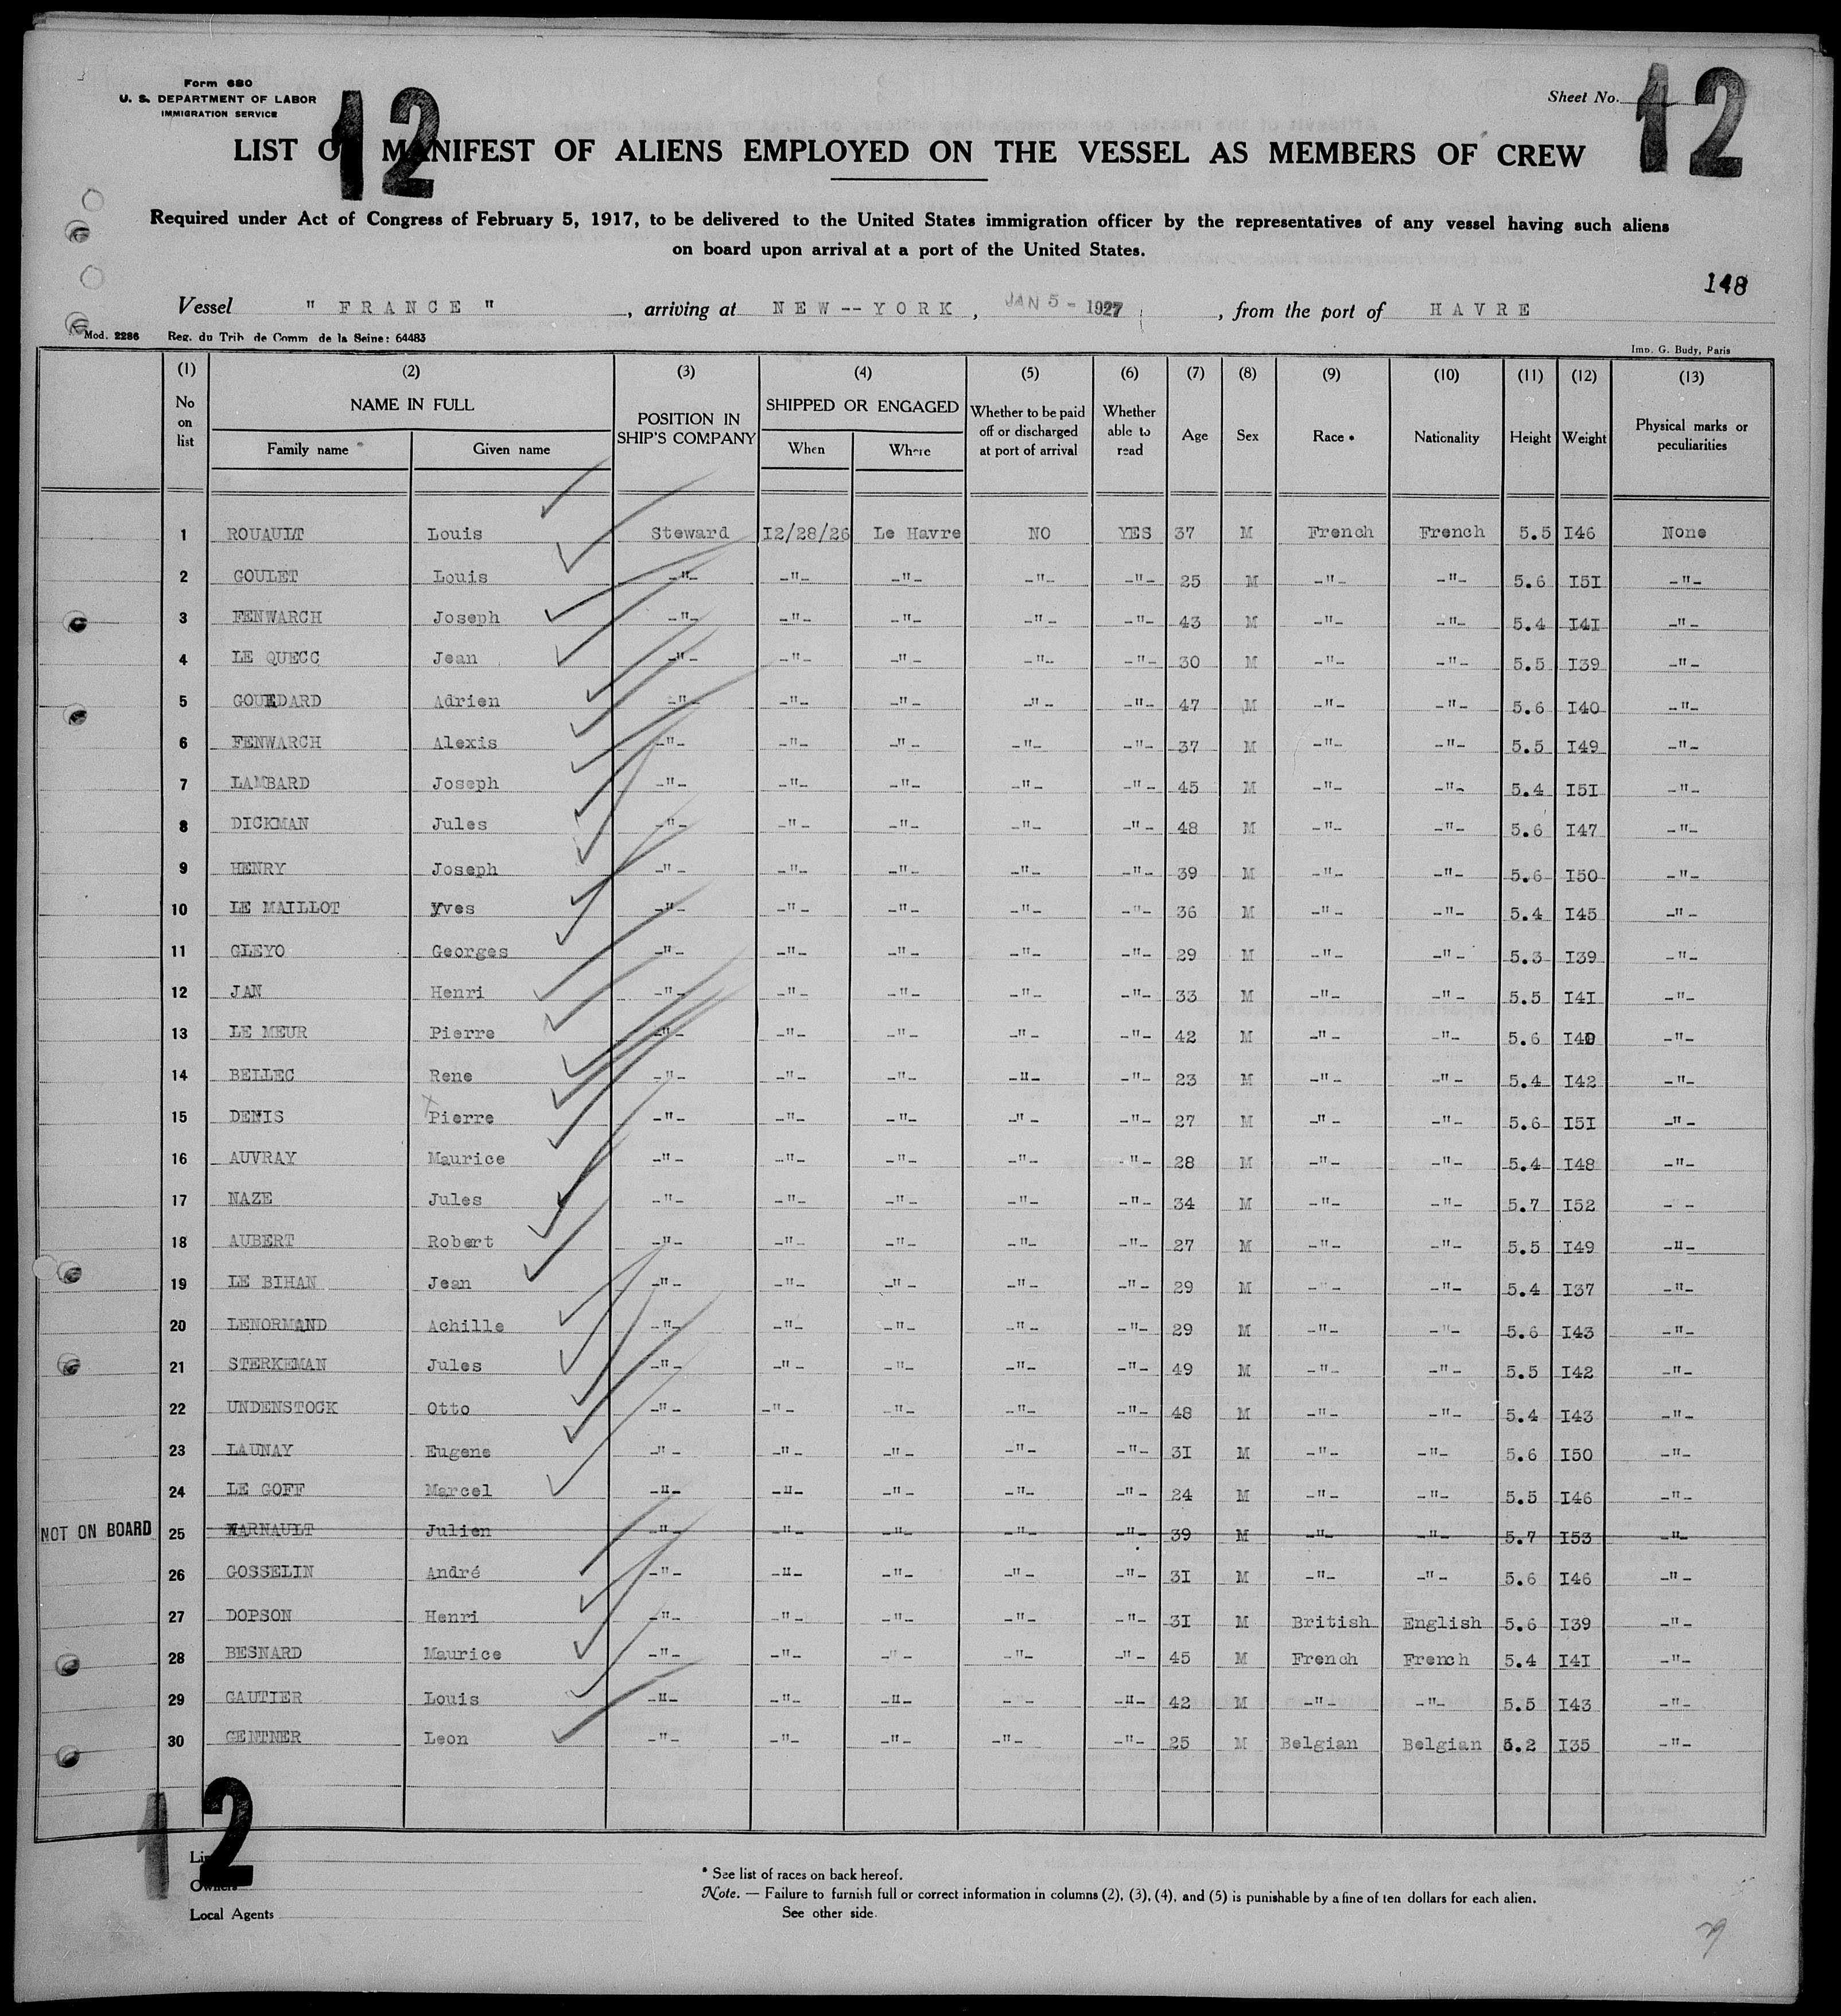 Form 680
U. S. DEPARTMENT OF LABOR
IMMIGRATION SERVICE
12
Sheet No. 12
LIST OR MANIFEST OF ALIENS EMPLOYED ON THE VESSEL AS MEMBERS OF CREW
Required under Act of Congress of February 5, 1917, to be delivered to the United States immigration officer by the representatives of any vessel having such aliens
on board upon arrival at a port of the United States.
148
Vessel " FRANCE " , arriving at NEW--YORK, JAN 5 - 1927 , from the port of HAVRE
Mod. 2286 Reg. du Trib de Comm de la Seine: 64483
Imp. G. Budy, Paris
(1) (2) (3) (4) (5) (6) (7) (8) (9) (10) (11) (12) (13)
No on list NAME IN FULL Family name Given name POSITION IN SHIP'S COMPANY SHIPPED OR ENGAGED When Where Whether to be paid off or discharged at port of arrival Whether able to read Age Sex Race * Nationality Height Weight Physical marks or peculiarities
1 ROUAULT Louis Steward I2/28/26 Le Havre NO YES 37 M French French 5.5 I46 None
2 GOULET Louis -"- -"- -"- -"- -"- 25 M -"- -"- 5.6 I5I -"-
3 FENWARCH Joseph -"- -"- -"- -"- -"- 43 M -"- -"- 5.4 I4I -"-
4 LE QUECC Jean -"- -"- -"- -"- -"- 30 M -"- -"- 5.5 I39 -"-
5 Adrien -"- -"- -"- -"- -"- 47 M -"- -"- 5.6 I40 -"-
6 FENWARCH Alexis -"- -"- -"- -"- -"- 37 M -"- -"- 5.5 I49 -"-
7 LAMBARD Joseph -"- -"- -"- -"- -"- 45 M -"- -"- 5.4 I5I -"-
8 DICKMAN Jules -"- -"- -"- -"- -"- 48 M -"- -"- 5.6 I47 -"-
9 HENRY Joseph -"- -"- -"- -"- -"- 39 M -"- -"- 5.6 I50 -"-
10 LE MAILLOT Yves -"- -"- -"- -"- -"- 36 M -"- -"- 5.4 I45 -"-
11 GLEYO Georges -"- -"- -"- -"- -"- 29 M -"- -"- 5.3 I39 -"-
12 JAN Henri -"- -"- -"- -"- -"- 33 M -"- -"- 5.5 I4I -"-
13 LE MEUR Pierre -"- -"- -"- -"- -"- 42 M -"- -"- 5.6 I40 -"-
14 BELLEC Rene -"- -"- -"- -"- -"- 23 M -"- -"- 5.4 I42 -"-
15 DENIS Pierre -"- -"- -"- -"- -"- 27 M -"- -"- 5.6 I5I -"-
16 AUVRAY Maurice -"- -"- -"- -"- -"- 28 M -"- -"- 5.4 I48 -"-
17 NAZE Jules -"- -"- -"- -"- -"- 34 M -"- -"- 5.7 I52 - -
18 AUBERT Robert -"- -"- -"- -"- -"- 27 M -"- -"- 5.5 I49 -"-
19 LE BIHAN Jean -"- -"- -"- -"- -"- 29 M -"- -"- 5.4 I37 -"-
20 LENORMAND Achille -"- -"- -"- -"- -"- 29 M -"- -"- 5.6 I43 -"-
21 STERKEMAN Jules -"- -"- -"- -"- -"- 49 M -"- -"- 5.5 I42 -"-
22 UNDENSTOCK Otto -"- -"- -"- -"- -"- 48 M -"- -"- 5.4 I43 -"-
23 LAUNAY Eugene -"- -"- -"- -"- -"- 31 M -"- -"- 5.6 I50 -"-
24 LE GOFF Marcel -"- -"- -"- -"- -"- 24 M -"- -"- 5.5 I46 -"-
NOT ON BOARD 25 WARNAULT Julien -"- -"- -"- -"- -"- 39 M -"- -"- 5.7 I53 -"-
26 GOSSELIN André -"- -"- -"- -"- -"- 3I M -"- -"- 5.6 I46 -"-
27 DOPSON Henri -"- -"- -"- -"- -"- 3I M British English 5.6 I39 -"-
28 BESNARD Maurice -"- -"- -"- -"- -"- 45 M French French 5.4 I4I -"-
29 GAUTIER Louis -"- -"- -"- -"- -"- 42 M -"- -"- 5.5 I43 -"-
30 GENTNER Leon -"- -"- -"- -"- -"- 25 M Belgian Belgian 5.2 I35 -"-
12
Owners
Local Agents
* See list of races on back hereof.
Note. — Failure to furnish full or correct information in columns (2), (3), (4), and (5) is punishable by a fine of ten dollars for each alien.
See other side.